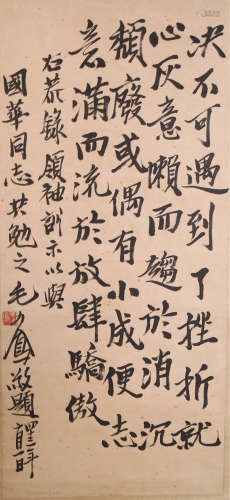 决不可遇到了挫折就
心灰意懒而趨於消沉
頹廢或偶有小成便志
意滿而流於放肆驕傲
右恭錄領袖訓示以與
國華同志共勉之毛人鳳敬題